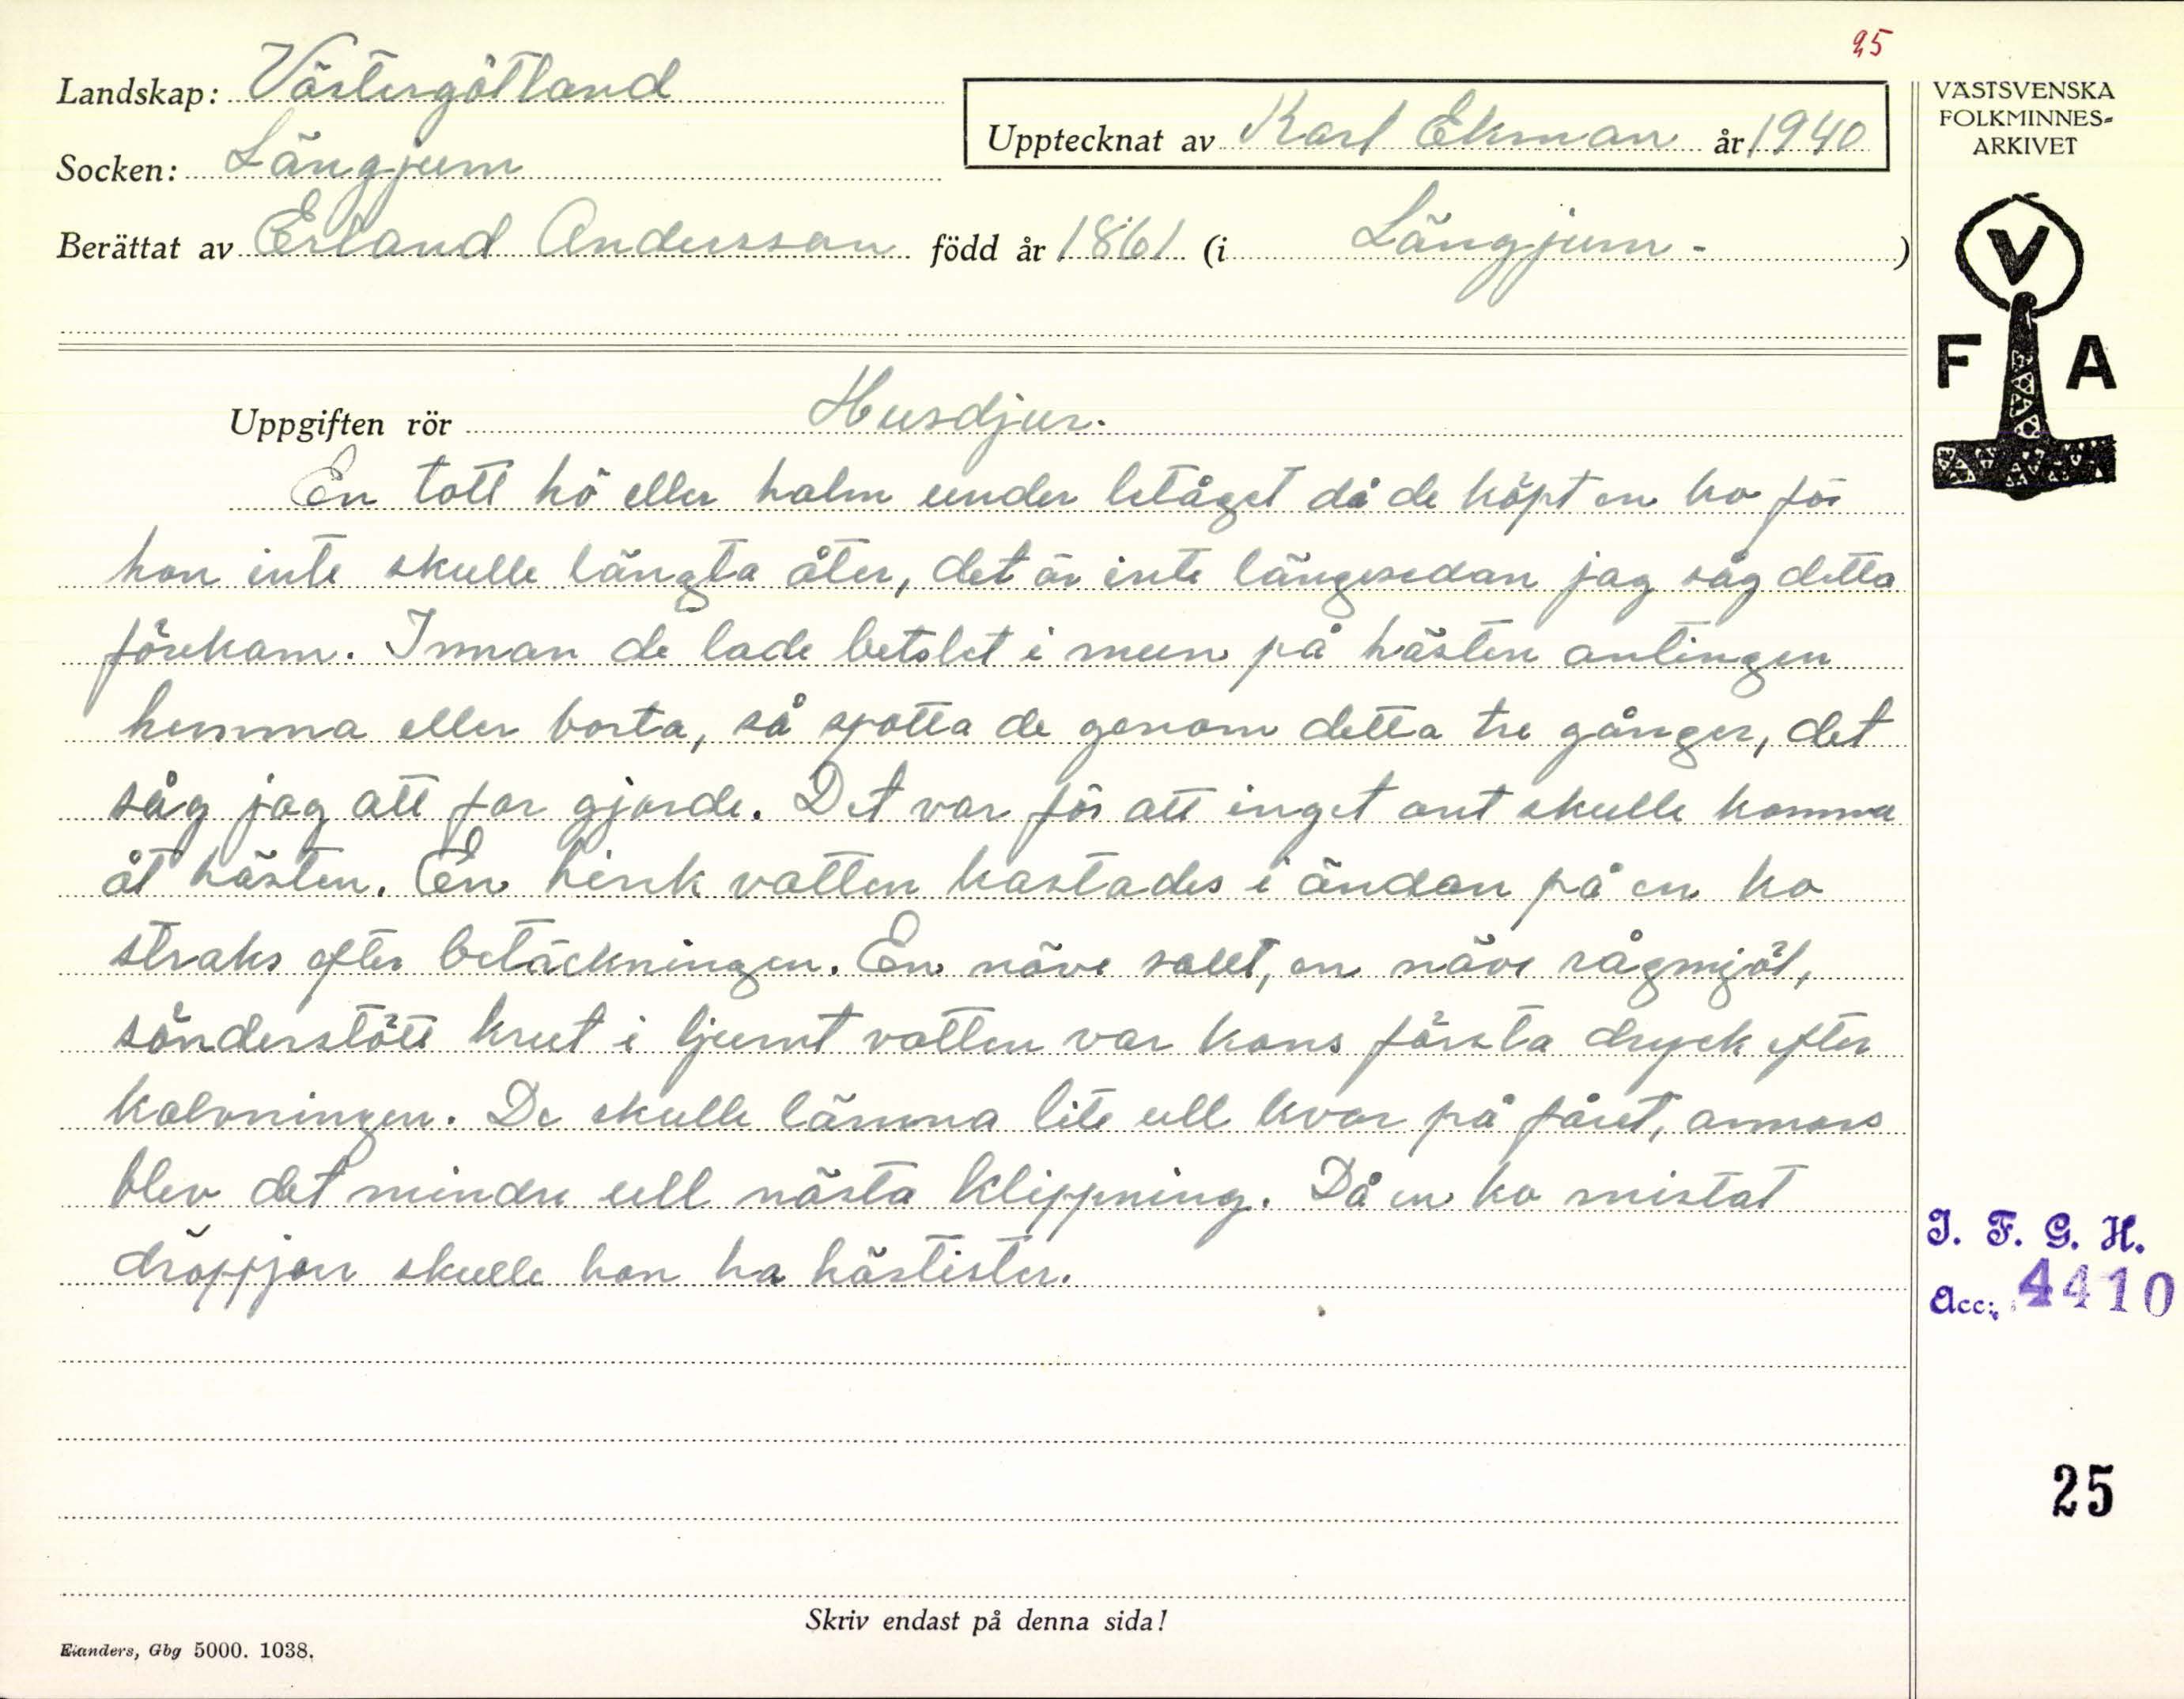 25
Landskap: Västergötland
Socken: Längjum
Upptecknat av Karl Ekman år 1940
Berättat av Erland Andersson född år 1861 (i Längjum - )
VÄSTSVENSKA
FOLKMINNES-
ARKIVET
V
F A
Uppgiften rör Husdjur.
En tott hö eller halm under letåget då de köpt en ko för
hon inte skulle längta åter, det är inte längesedan jag såg detta
förekam. Innan de lade betslet i mun på hästen antingen
hemma eller borta, så spotta de genom detta tre gånger, det
såg jag att far gjorde. Det var för att inget ont skulle komma
åt hästen. En hink vatten kastades i ändan på en ko
straks efter betäckningen. En näve salt, en näve rågmjöl,
sönderstött krut i ljumt vatten var kons första dryck efter
kalvningen. De skulle lämna lite ull kvar på fåret, annars
blev det mindre ull nästa klippning. Då en ko mistat
dröppjan skulle hon ha hästister.
I. F. G. H.
Acc: 4410
25
Skriv endast på denna sida!
Elanders, Gbg 5000. 1038.